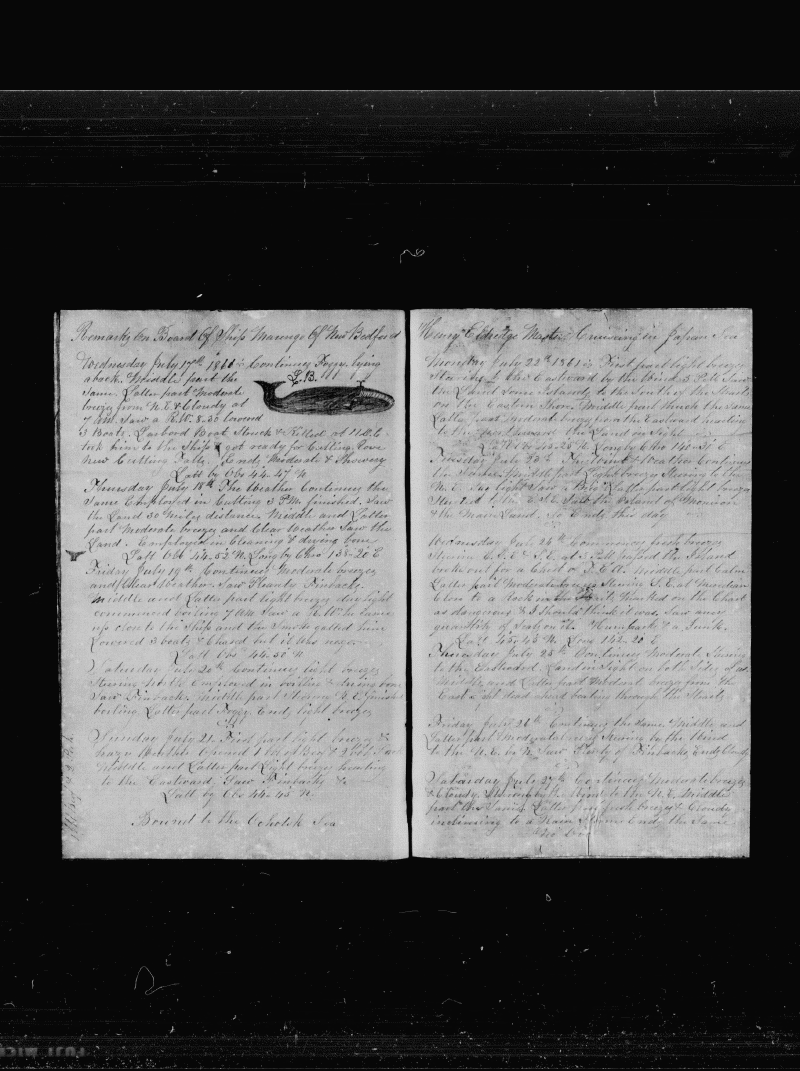 Remarks On Board Of Ship Marengo Of New Bedford
Wednesday July 17th 1861 Continues Foggy lying
aback. Middle part the
L. B.
Same. Latter part Moderate
breeze from N.E. & Cloudy at
7 AM. Saw a R.W. 8.30 lowered
3 Boats. Larbord Boat Struck & Killed at 11
took him to the Ship & got ready for Cutting Rove
New Cutting Falls. Ends Moderate & Showery
Latt by Obs 44.47 N
Thursday July 18th The Weather Continues the
Same Employed in Cutting 3 PM finished. Saw
the Land 30 Miles distance Middle and Latter
part Moderate breeze and Clear Weather Saw the
Land. Employed in Cleaning & drying bone
Latt Obs 44.52 N Long by Chro 138-20 E
Friday July 19th Continues Moderate breeze
and Clear Weather Saw Plenty Finbacks
Middle and Latter part light breeze day light
commenced boiling 7 AM Saw a R.W. he came
up close to the Ship and the Smoke gallied him
Lowered 3 boats & Chased but it was no go
Latt Obs 44.50 N
Saturday July 20th Continues light breeze
Stearing
Saw Finback. Middle part Stormy finished
boiling Latter part Foggy Ends light breeze
Sunday July 21. First part light breeze &
hazy Weather
Middle and Latter part Light breeze heading
to the Eastward Saw Finbacks &c
Latt by Obs 44-45 N
Bound to the Ochotsk Sea
Henry Eldridge Master Cruising in Japan Sea
Monday July 22nd 1861 First part light breeze
Stearing to the Eastward by the Wind 3 PM Saw
the Land Some Islands to the South of the Straits
on the Eastern Shore. Middle part Much the Same
Latter part Moderate breeze from the Eastward heading
to the Land in Sight
Latt Obs 45-25 N Long by Chro 140-51 E
Tuesday July 23rd First part Weather Continues
the Same Middle part Light breeze Stearing
N.E. Day light Saw Latter part light breeze
Steared to the E.S.E. Saw the Island of
& the Main Land. So Ends this day
Wednesday July 24th Commences fresh breeze
Stearing E.S.E. & S.E. at 3 PM passed the Island
Middle part Calm
Latter part Moderate breeze Stearing S.E. at Meridian
Close to a Rock in the Straits Marked on the Chart
as dangerous & I Should think it was. Saw any
quantity of Seals on it. Humpback & a Junk.
Latt 45-45 N Long 142-20 E
Thursday July 25th Continues Moderate Stearing
to the Eastward Land in Sight on both Sides of us
Middle and Latter part Moderate breeze from the
East Light Head wind beating through the Straits
Friday July 26th Continues the Same Middle and
Latter part Moderate breeze Stearing by the Wind
to the N.E. by N. Saw Plenty of Finbacks Ends Cloudy
Saturday July 27th Continues Moderate breeze
& Cloudy Stearing by the Wind to the N.E. Middle
part the Same Latter part fresh breeze & Cloudy
inclining to a Rain Storm Ends the Same
No Obs